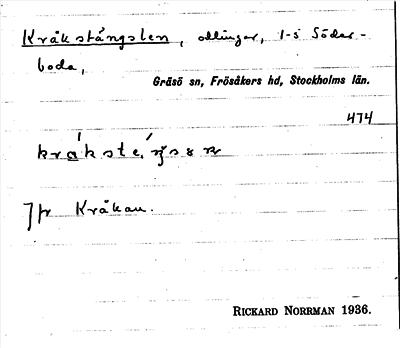 Kråkstångsten, odlingar, 1 s Söder-
boda,
Gräsö sn, Frösåkers hd, Stockholms län.
474
Jfr Kråkan.
RICKARD NORRMAN 1936.